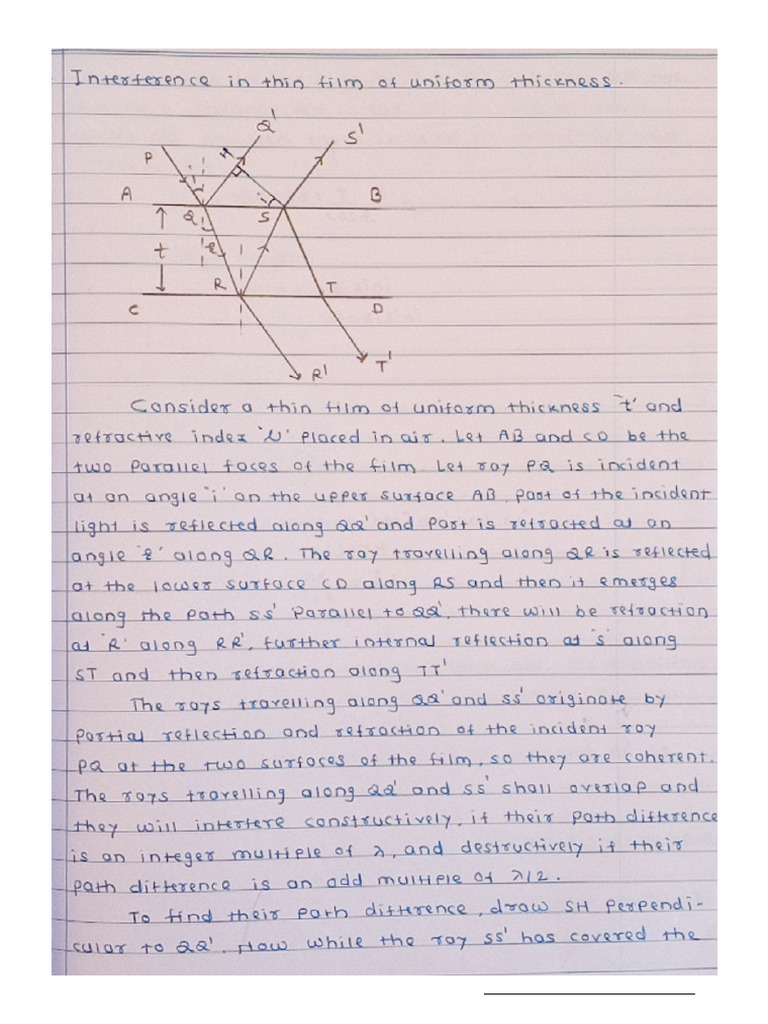 Interference in thin film of uniform thickness.
Q'
S'
P
M
i
A
B
Q
i
S
t
r
R
T
C
D
R'
T'
Consider a thin film of uniform thickness 't' and
refractive index 'μ' placed in air. Let AB and CD be the
two parallel faces of the film. Let ray PQ is incident
at an angle 'i' on the upper surface AB, part of the incident
light is reflected along QQ' and part is refracted at an
angle 'r' along QR. The ray travelling along QR is reflected
at the lower surface CD along RS and then it emerges
along the path SS' parallel to QQ'. there will be refraction
at 'R' along RR', further internal reflection at 's' along
ST and then refraction along TT'
The rays travelling along QQ' and SS' originate by
partial reflection and refraction of the incident ray
PQ at the two surfaces of the film, so they are coherent.
The rays travelling along QQ' and SS' shall overlap and
they will interfere constructively, if their path difference
is an integer multiple of λ, and destructively if their
path difference is an odd multiple of λ/2.
To find their path difference, draw SM perpendi-
cular to QQ'. Now while the ray SS' has covered the